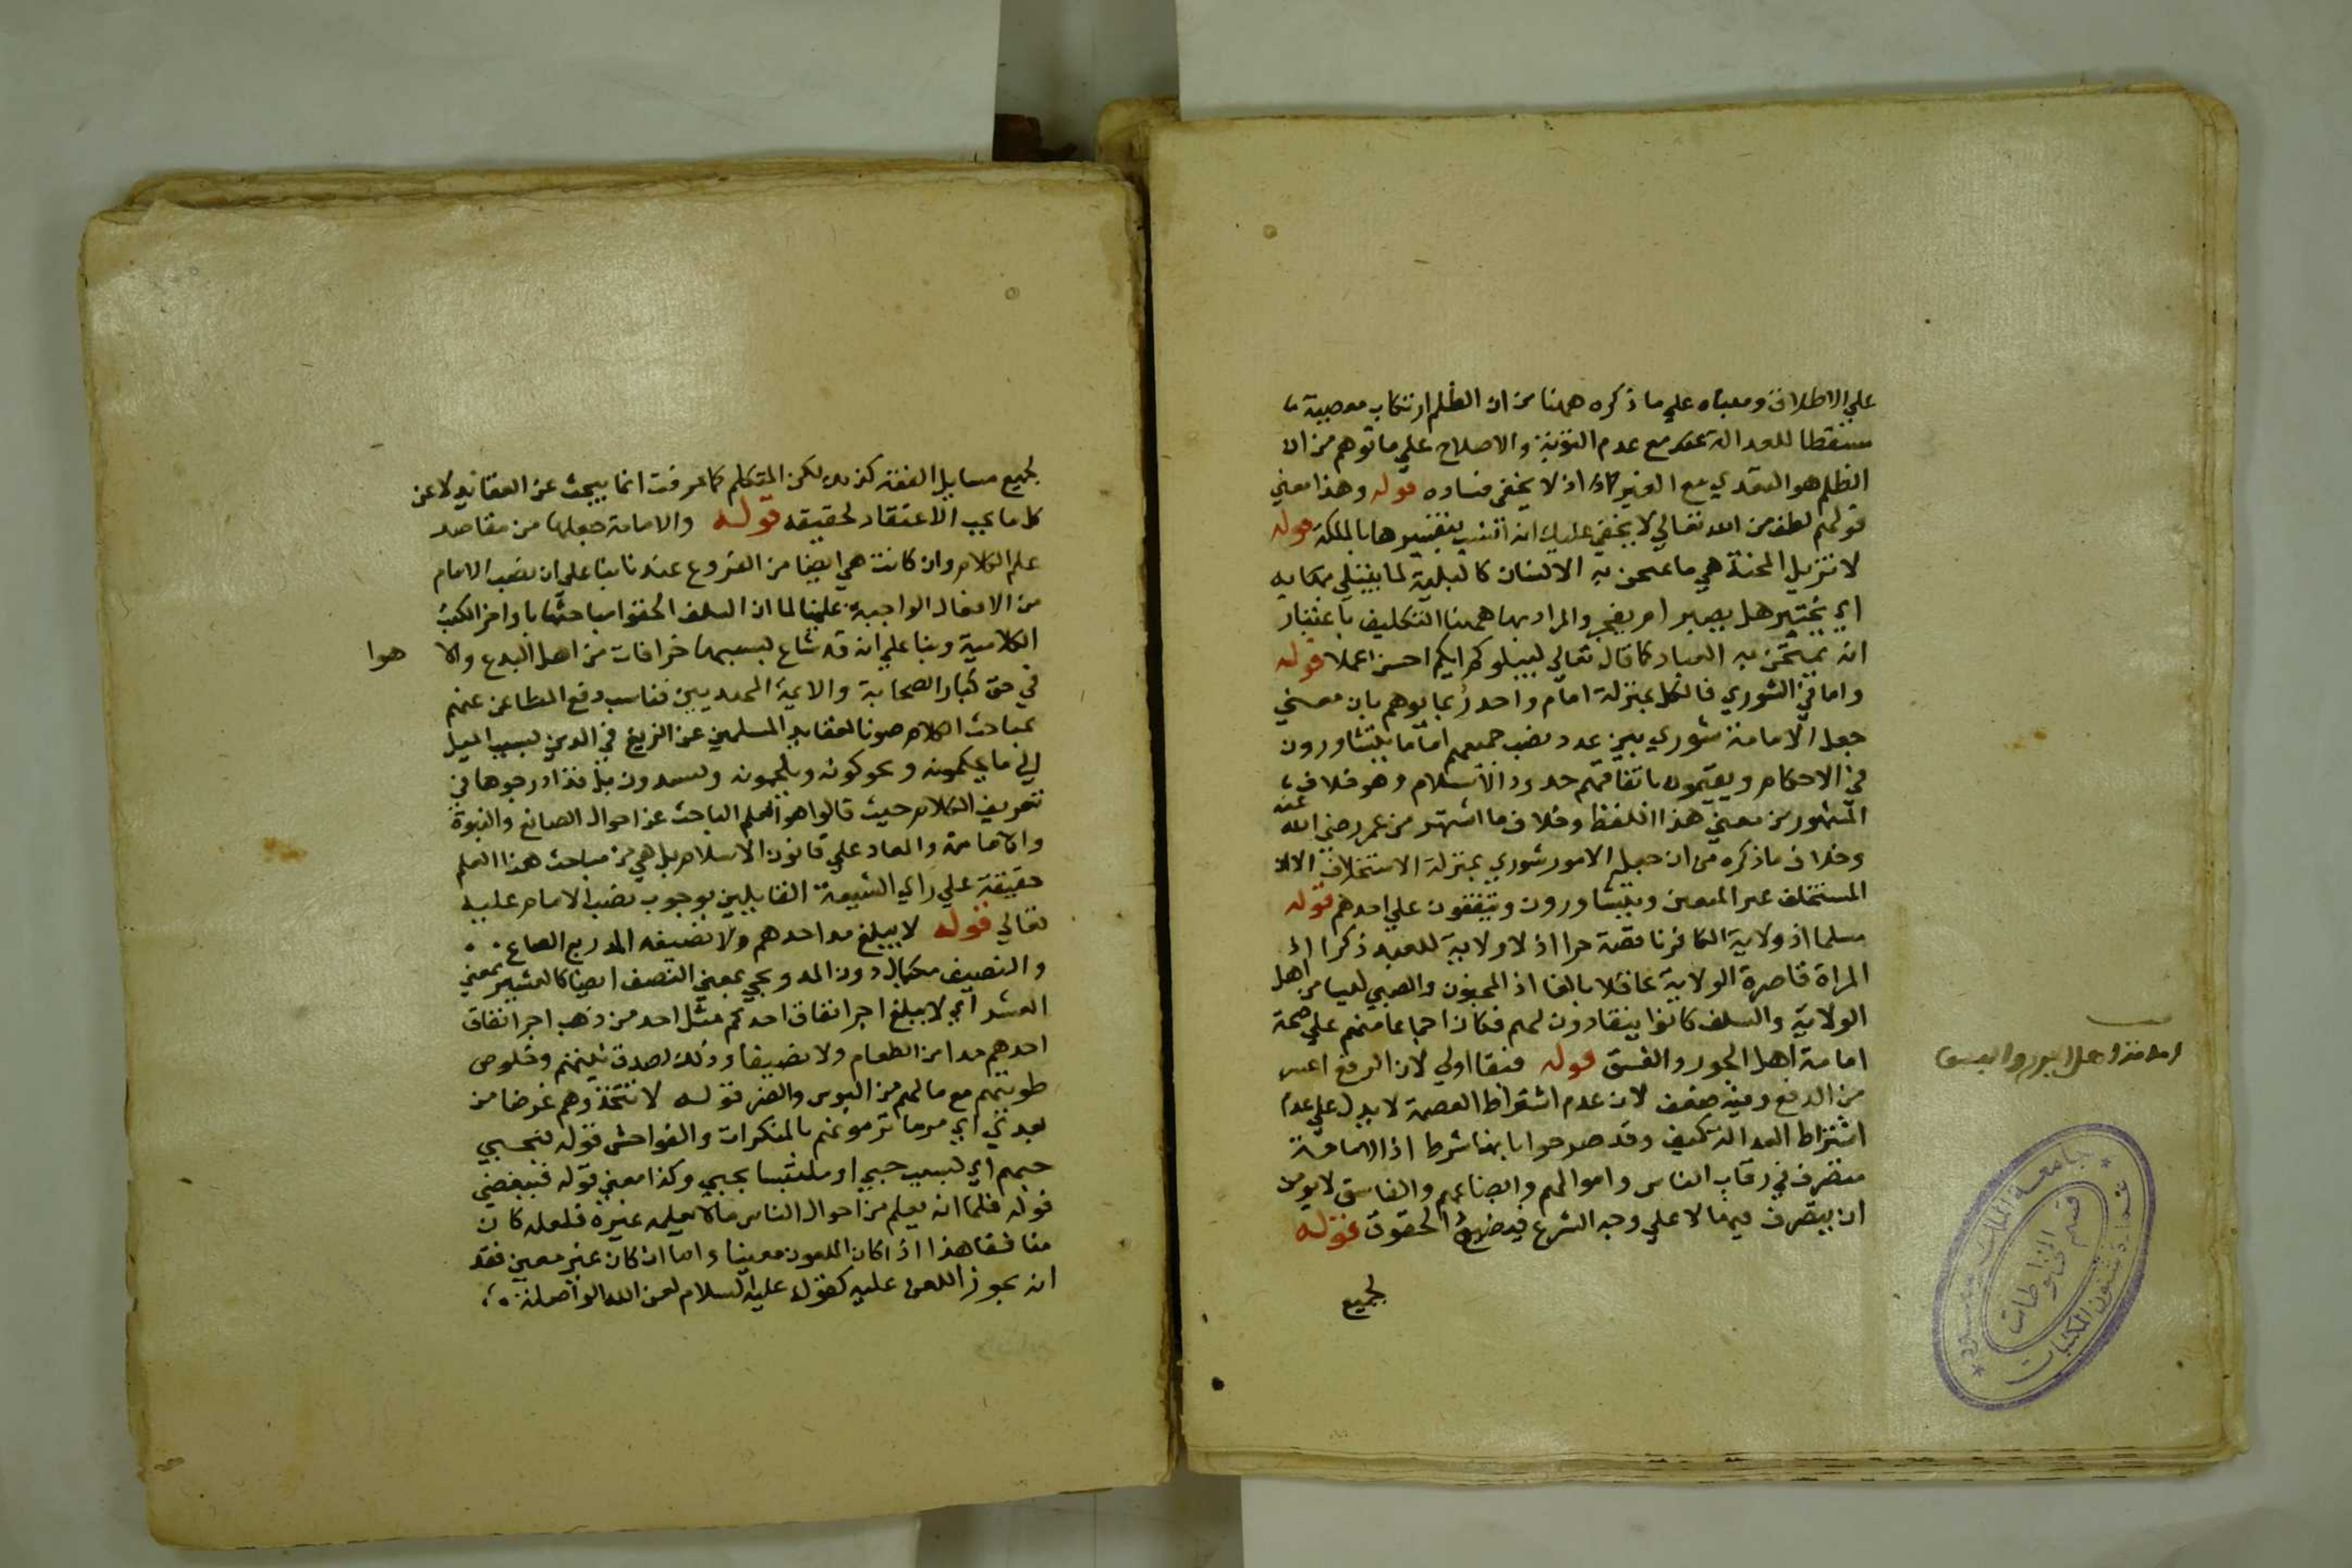 علي الاطلاق ومبناه علي ما ذكره ههنا من ان الظلم ارتكاب معصية
مسقطة للعدالة مع عدم التوبة والاصلاح علي ما توهم من ان
الظلم هو التعدي مع الغير اذ لا يخفي فساده قوله وهذا معني
قولهم لطف من الله تعالي لا يخفي عليك ان تفسيرها بالملكة قوله
لا تزيل المحنة هي ما يمتحن به الانسان كالبلية لما يبتلي بها
اي يختبر هل يصبر ام يفجر والمراد بها ههنا التكليف باعتبار
انه يمتحن به العباد كما قال تعالي ليبلوكم ايكم احسن عملا قوله
واما في الشوري فالكل بمنزلة امام واحد ربما يوهم بان معني
جعل الامامة شوري بين عدد نصب جميعهم اماما يتشاورون
في الاحكام ويقيمون باتفاقهم حدود الاسلام وهو خلاف
المشهور من معني هذا اللفظ وخلاف ما اشتهر من عمر رضي الله عنه
وخلاف ما ذكره من ان جعل الامور شوري بمنزلة الاستخلاف الا ان
المستخلف غير المعين ويتشاورون ويتفقون علي احدهم قوله
مسلما اذ ولاية الكافر ناقصة حرا اذ لا ولاية للعبد ذكرا اذ
المراة قاصرة الولاية عاقلا بالغا اذ المجنون والصبي ليسا من اهل
الولاية والسلف كانوا ينقادون لهم فكان اجماعا منهم علي صحة
امامة اهل الجور والفسق قوله فبقا اولي لان الرفع اعسر
من الدفع وفيه ضعف لان عدم اشتراط العصمة لا يدل علي عدم
اشتراط العدالة كيف وقد صرحوا بانها شرط اذ الامامة
تتصرف في رقاب الناس واموالهم وابضاعهم والفاسق لا يومن
ان يتصرف فيها لا علي وجه الشرع فيضيع الحقوق قوله
لجميع
امامة اهل الجور والفسق
جامعة الملك سعود
عمادة شئون المكتبات
قسم المخطوطات
لجميع مسايل الفقه كذلك لكن المتكلم كما عرفت انما يبحث عن العقايد لا عن
كل ما يجب الاعتقاد لحقيقه قوله والامامة جعلها من مقاصد
علم الكلام وان كانت هي ايضا من الفروع عندنا بنا علي ان نصب الامام
من الافعال الواجبة علينا لما ان السلف الحقوا مباحثها باواخر الكتب
الكلامية وبنا علي انه قد شاع بسببها خرافات من اهل البدع والا هوا
في حق كبار الصحابة والايمة المهديين فناسب دفع المطاعن عنهم
بمباحث الكلام صونا لعقايد المسلمين عن الزيغ في الدين بسبب الميل
الي ما يحكمونه ويحوكونه ويلحمونه ويسدون بل قد ادرجوها في
تعريف الكلام حيث قالوا هو العلم الباحث عن احوال الصانع والنبوة
والامامة والمعاد علي قانون الاسلام بل هي من مباحث هذا العلم
حقيقة علي راي الشيعة القايلين بوجوب نصب الامام عليه
تعالي قوله لا يبلغ مد احدهم ولا نصيفه المد ربع الصاع
والنصيف مكيال دون المد ويجي بمعني النصف ايضا كالعشير بمعني
العشر اي لا يبلغ اجر انفاق احدكم مثل احد من ذهب اجر انفاق
احدهم مدا من الطعام ولا نصيفا وذلك لصدق نيتهم وخلوص
طويتهم مع ما لهم من البوس والضر قوله لا تتخذوهم غرضا من
بعدي اي مرما ترمونهم بالمنكرات والفواحش قوله فبحبي
حبهم اي بسبب حبي او ملتبسا بحبي وكذا معني قوله فببغضي
قوله فلما انه يعلم من احوال الناس ما لا يعلمه غيره فلعله كان
منافقا هذا اذا كان الملعون معينا واما ان كان غير معين فقد
ان يجوز اللعن عليه كقوله عليه السلام لعن الله الواصلة